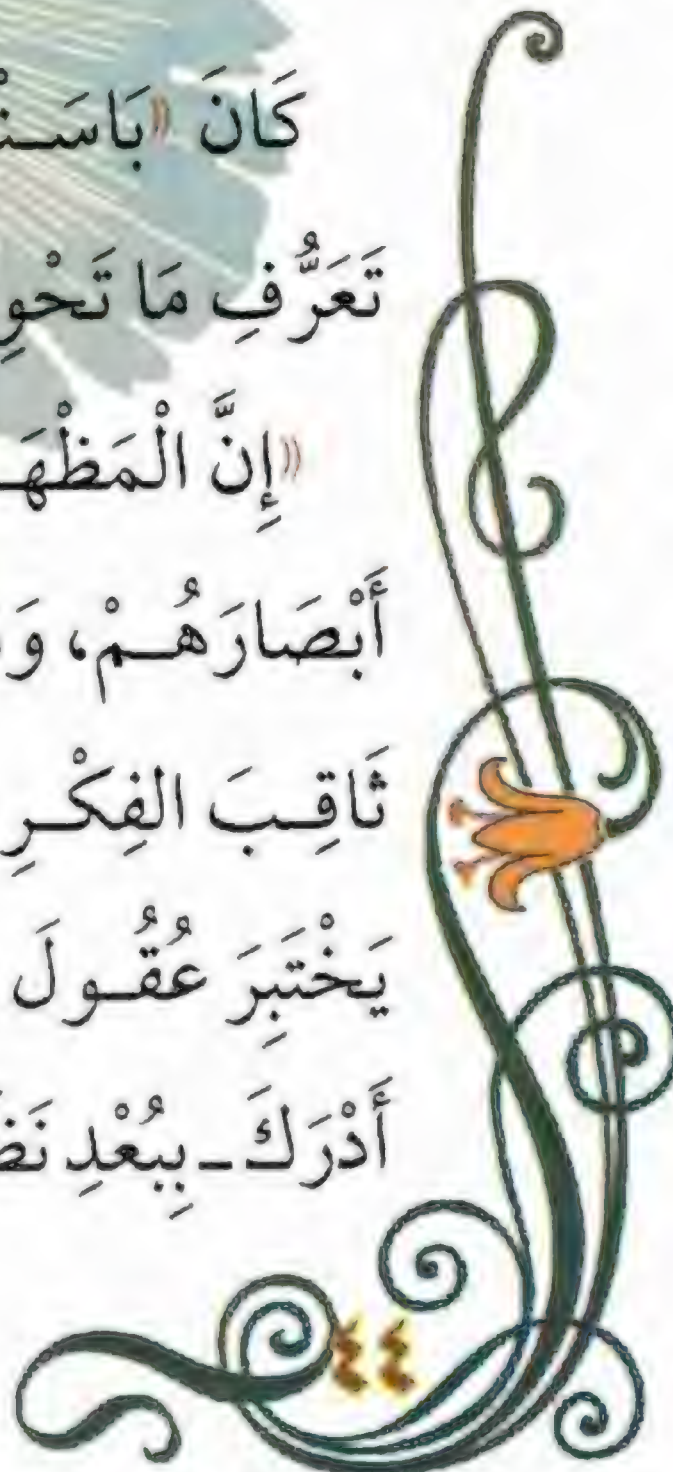 كَانَ «بَاسَنْ
تَعَرُّفِ مَا تَحْوِ
«إِنَّ الْمَظْهَـ
أَبْصَارَهُـمْ، وَ
ثَاقِـبَ الفِكْـرِ
يَخْتَبِرَ عُقُـولَ
أَدْرَكَ ـ بِبُعْدِ نَظَـ
٤٤